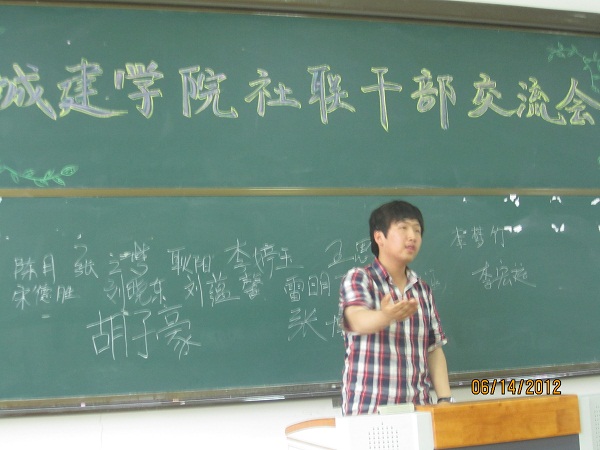 城建学院社联干部交流会
陈月 张 梦 耿阳 李婷玉 卫思 李梦竹
宋健胜 刘晓东 刘蕴馨 雷明 李宏超
胡子豪 张
06/14/2012